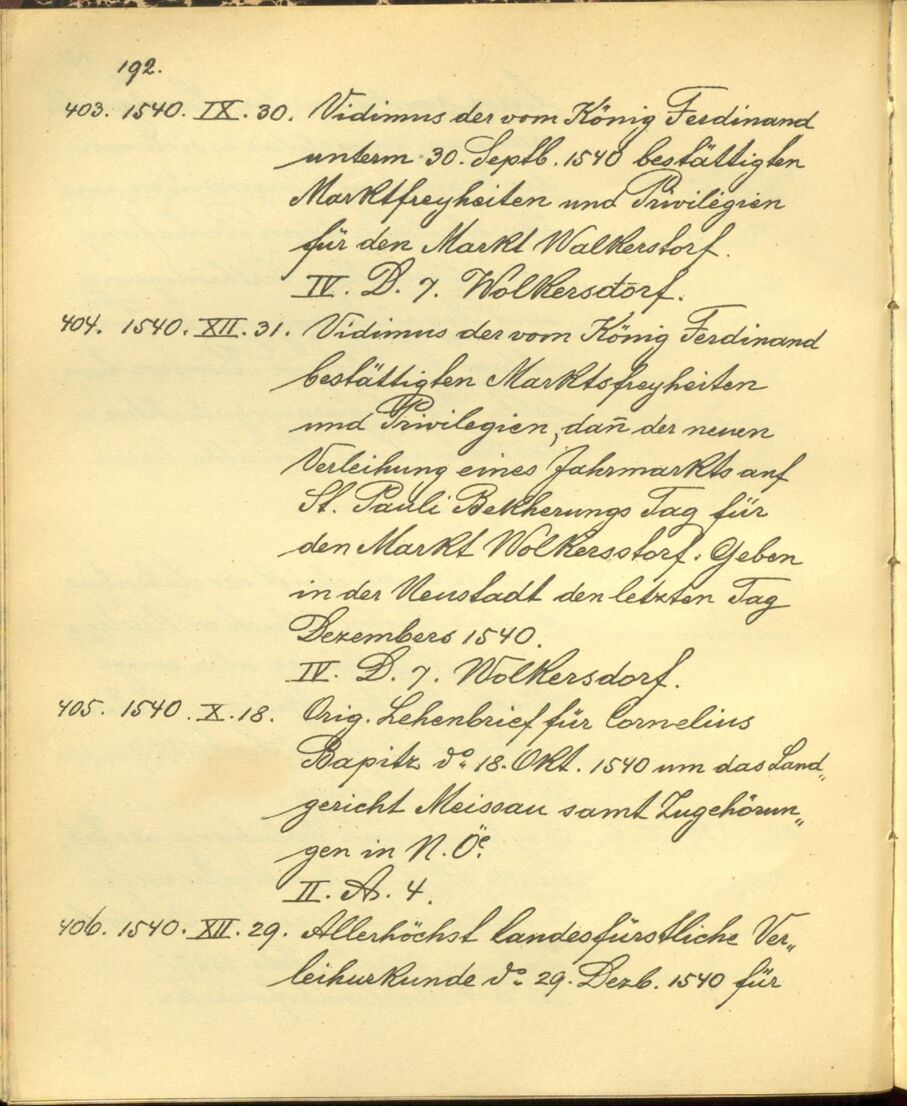 192.
403. 1540. IX. 30. Vidimus der vom König Ferdinand
unterm 30. Septb. 1540 bestättigten
Marktfreyheiten und Privilegien
für den Markt Walkerstorf.
IV. D. 7. Wolkersdorf.
404. 1540. XII. 31. Vidimus der vom König Ferdinand
bestättigten Marktsfreyheiten
und Privilegien, dan̄ der neuen
Verleihung eines Jahrmarkts auf
St. Pauli Bekherungs Tag für
den Markt Wolkersstorf. Geben
in der Neustadt den letzten Tag
Dezembers 1540.
IV. D. 7. Wolkersdorf.
405. 1540. X. 18. Orig. Lehenbrief für Cornelius
Bapitz do. 18. Okt. 1540 um das Land„
gericht Meissau samt Zugehörun„
gen in N. Öe.
II. A. 4.
406. 1540. XII. 29. Allerhöchst landesfürstliche Ver„
leihurkunde do. 29. Dezb. 1540 für